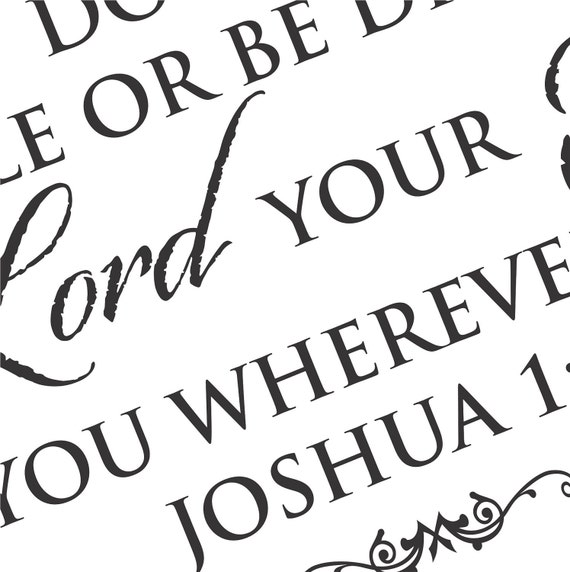 DO
LE OR BE DI
Lord YOUR
YOU WHEREVE
JOSHUA 1: